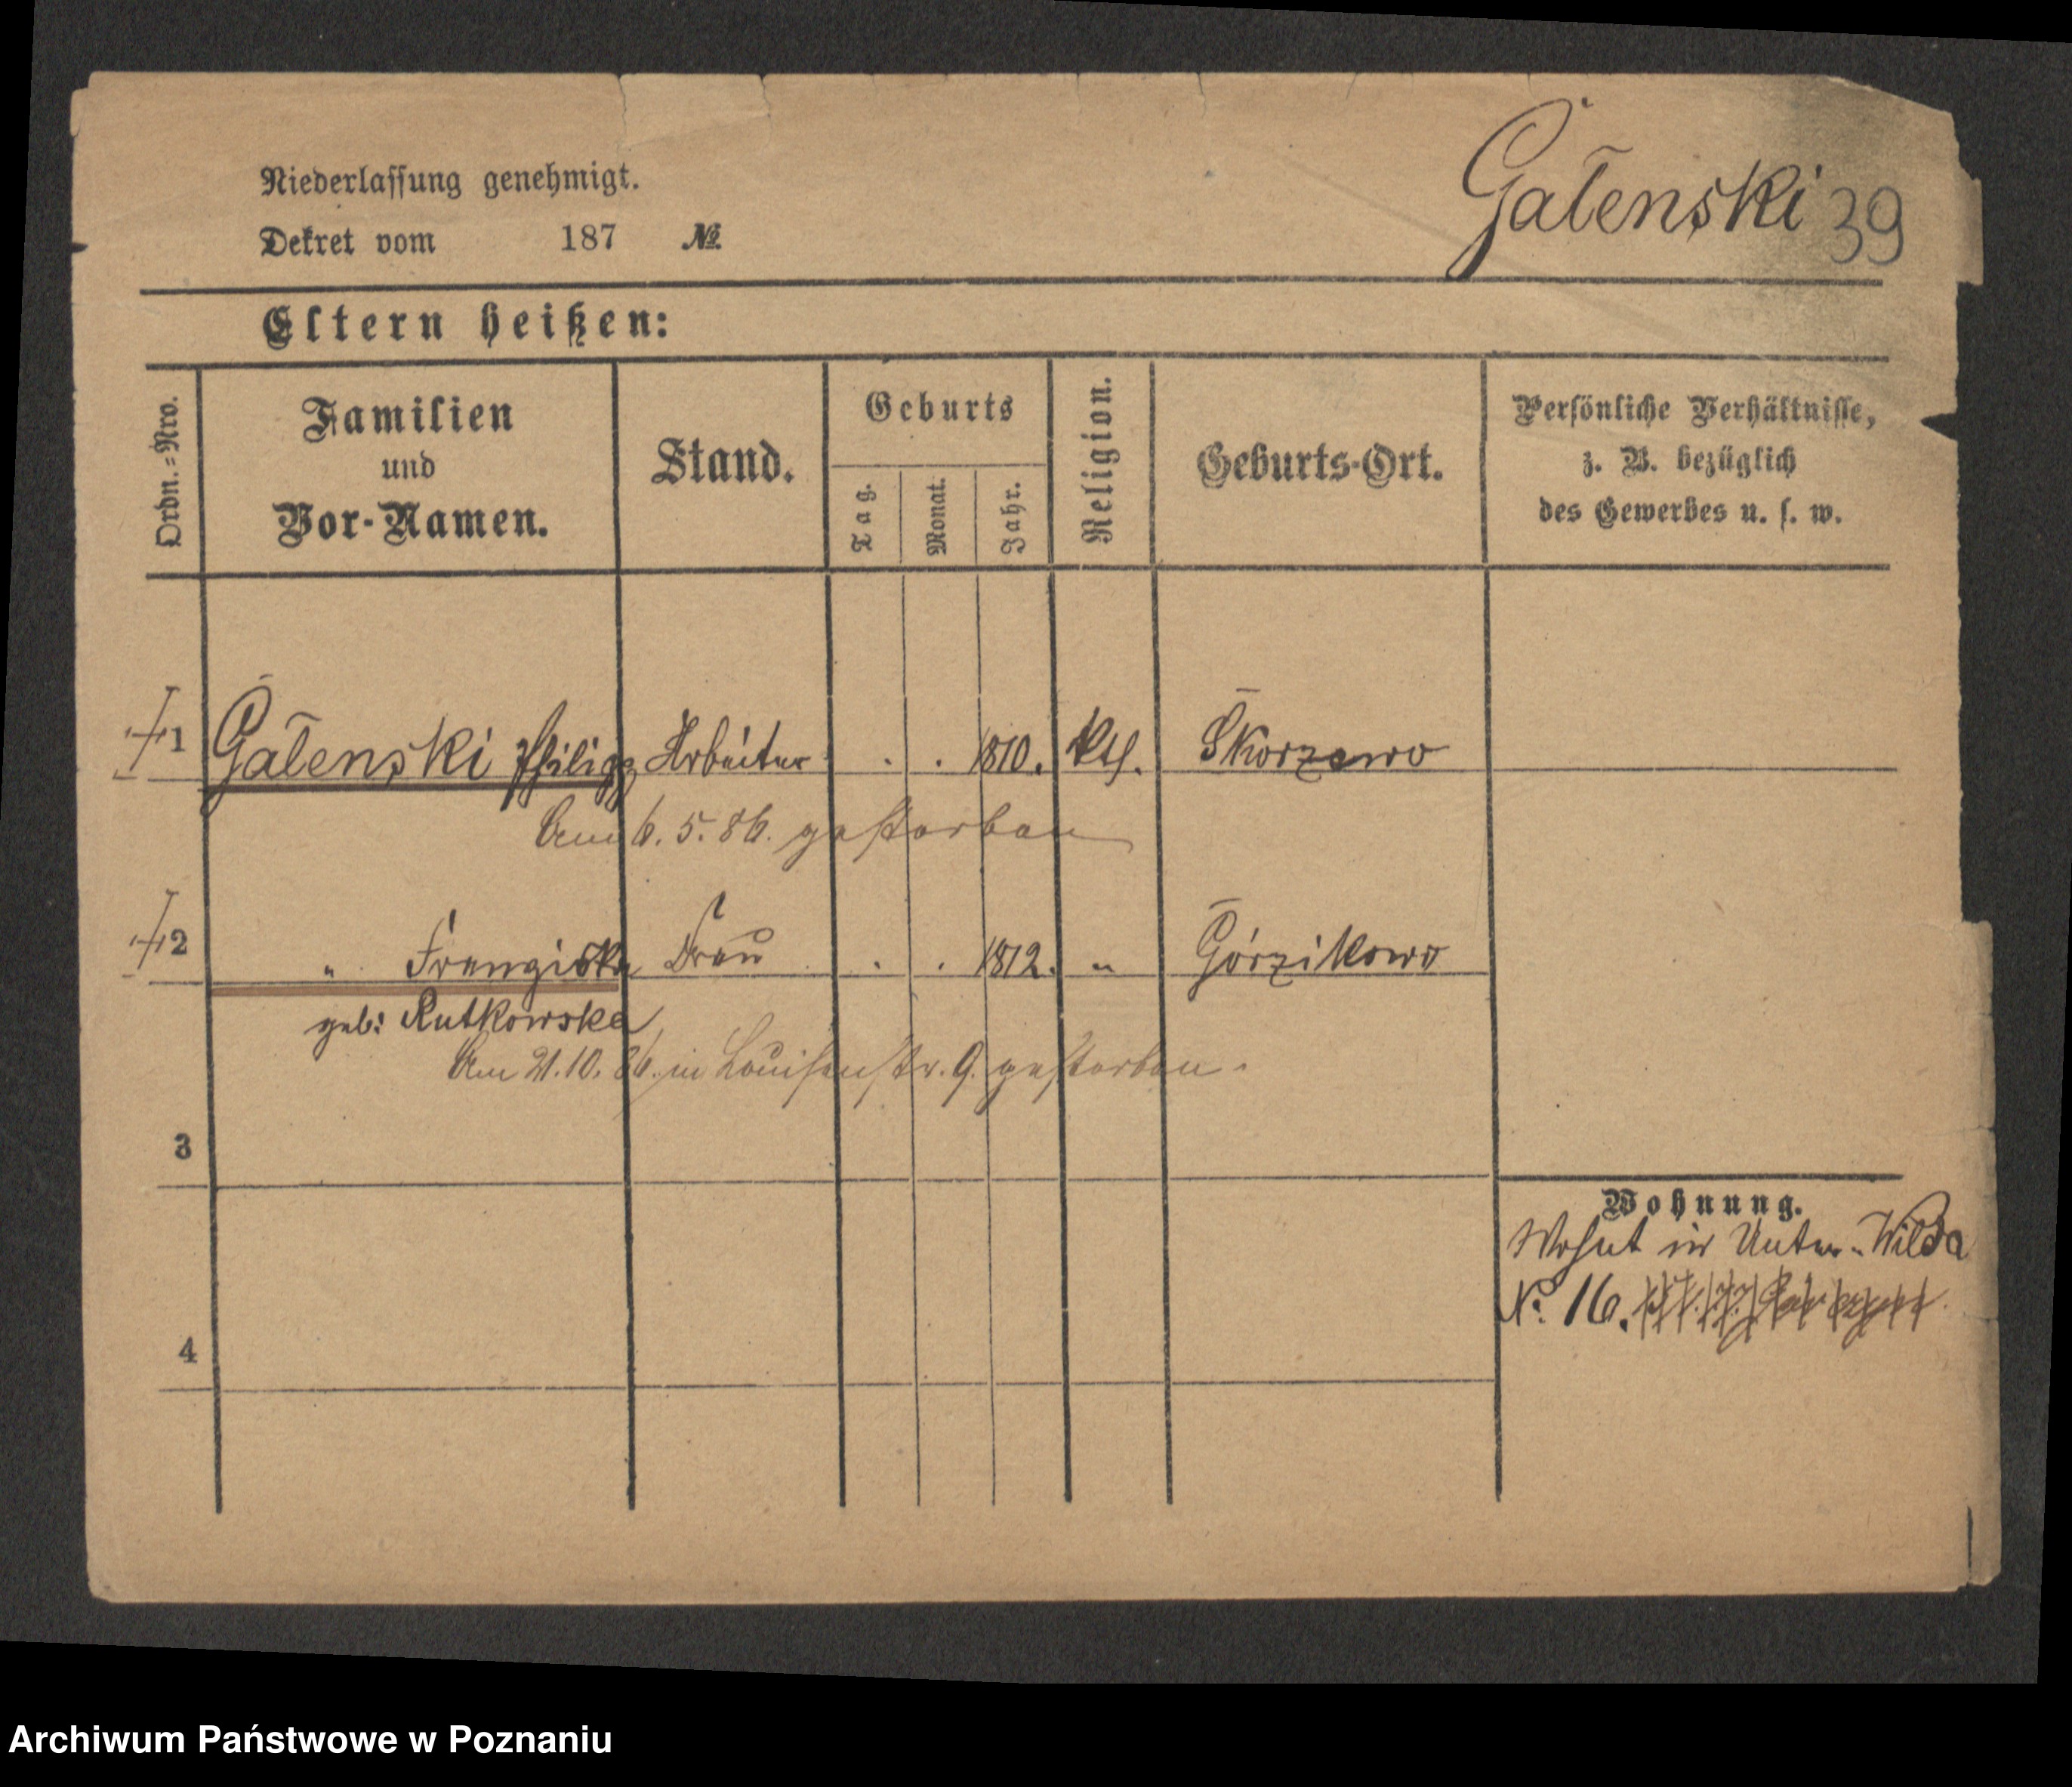 Niederlassung genehmigt.
Dekret vom 187 №
Gałenski 39
Eltern heißen:
Ordn.=Nro.
Familien und Vor-Namen.
Stand.
Geburts
Tag.
Monat.
Jahr.
Religion.
Geburts-Ort.
Persönliche Verhältnisse,
z. B. bezüglich
des Gewerbes u. s. w.
1 Gałenski Philipp Arbeiter . . 1810. kth. Skorzewo
Am 6. 5. 86. gestorben
2 " Franziska Frau . . 1812. " Górzikowo
geb: Rutkowska
Am 21. 10. 86. in Louisenstr. 9. gestorben.
3
Wohnung.
Wohnt in Unter-Wilda
N. 16.
4
Archiwum Państwowe w Poznaniu